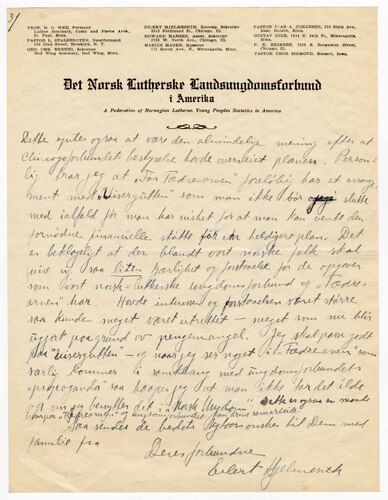 3)
PROF. M. O. WEE, Formand
Luther Seminary, Como and Pierce Aves.,
St. Paul, Minn.
PASTOR L. STALHEROTEN, Næstformand
Brooklyn, N. Y.
GEO. CHR. BRENNI, Sekretær
Red Wing Seminary, Red Wing, Minn.
EILERT HJELMSETH, Korresp. Sekretær
Ferdinand St., Chicago, Ill.
EDWARD HANSEN, Assist. Sekretær
North Ave., Chicago, Ill.
MARIUS HAGEN, Kasserer
Queen Ave., N., Minneapolis, Minn.
PASTOR IVAR A. JOHANSEN,
East, Duluth, Minn.
GUSTAV EIDE, Minneapolis,
Minn.
P. B. ERIKSEN, Sangamon Street,
Chicago, Ill.
PASTOR THOR SIGMOND, Kenyon, Iowa
Det Norsk Lutherske Landsungdomsforbund
i Amerika
A Federation of Norwegian Lutheran Young Peoples Societies in America
Dette syntes ogsaa at være den almindelige mening efter at
Chicagoforbundet bestyrelse havde overveiet planen. Person-
lig tror jeg at "For Fædrearven" foreløbig har et arrange-
ment med "Visergutten" som man ikke bør slutte
med ialfald før man har vished for at man kan vente den
fornødne finansielle støtte for en heldigere plan. Det
er beklageligt at der blandt vort norske folk skal
være saa liten kjærlighet og forstaaelse for de opgaver
som vort norsk-lutherske ungdomsforbund og "Fædre-
arven" har. Havde interessen og forstaaelsen været større
saa kunde meget været utrettet - meget som nu blir
ugjort paagrund av pengemangel. Jeg skal passe godt
paa "Visergutten" - og naar jeg ser noget i "Fædrearven" som
særlig kommer i samklang med ungdomsforbundets
"propaganda" saa haaper jeg at man ikke tar det ilde
op om jeg benytter det i "Norsk Ungdom". Dette er ogsaa en maate
hvorpaa "Fædrearven" og ungdomsforbundet kan drive samarbeide.
Saa sendes de bedste nytaarsønsker til Dem med
familie fra
Deres forbundne
Eilert Hjelmseth